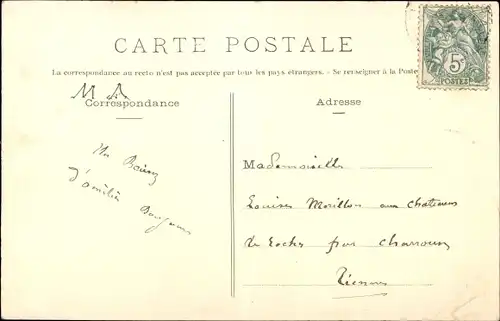 CARTE POSTALE
La correspondance au recto n'est pas acceptée par tous les pays étrangers. - Se renseigner à la Poste
M A
Correspondance
Adresse
5c
POSTES
Un Baiser
d'amitié
Mademoiselle
Louise Morillon aux Chateaux
de Roche par Charroux
Vienne